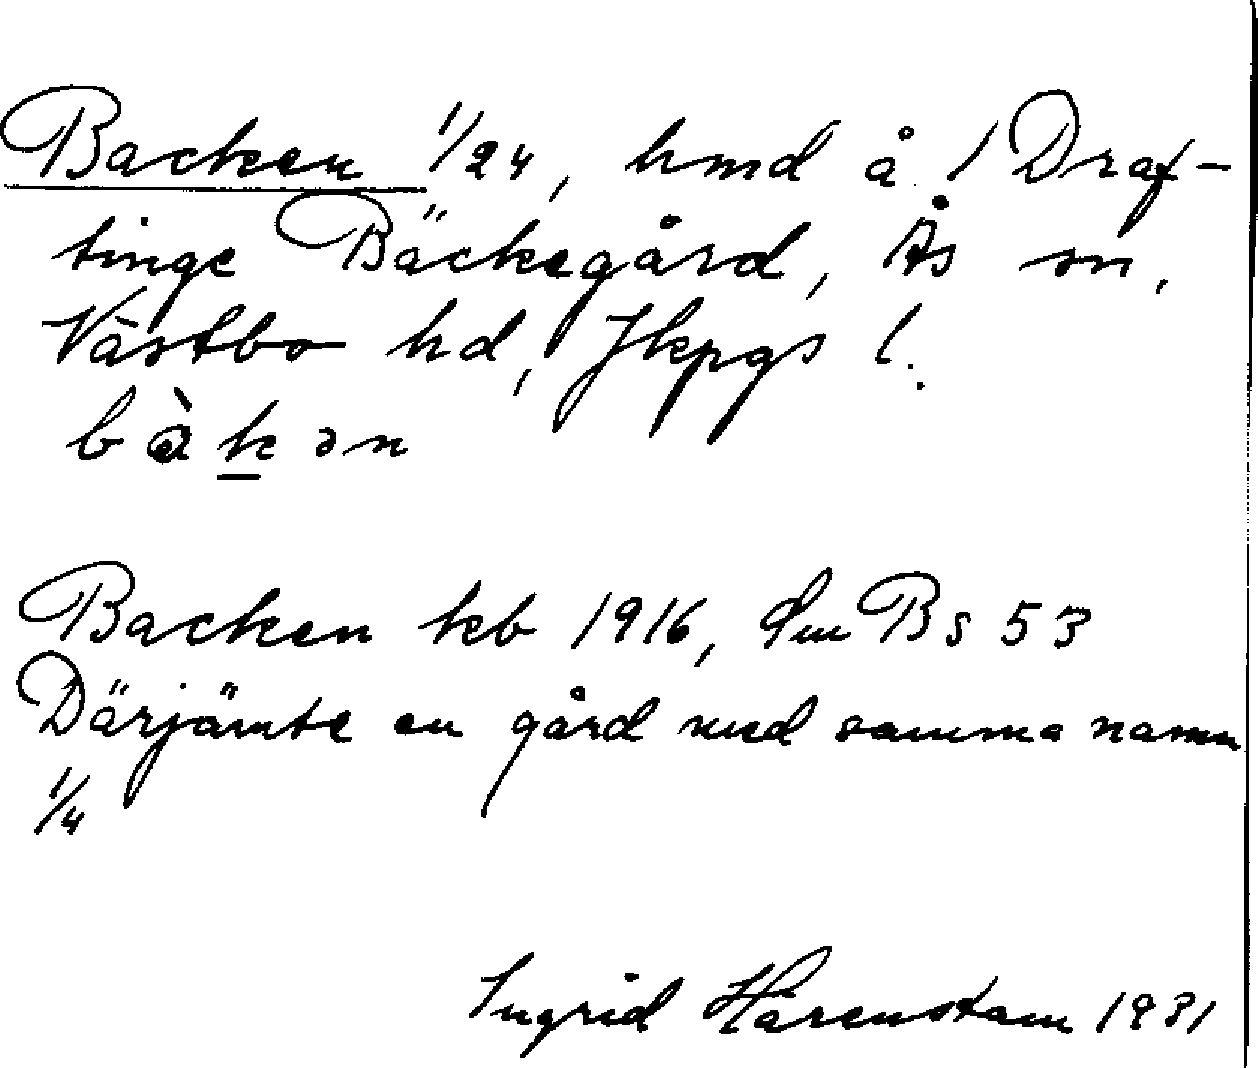 Backen 1/24, hmd å 1 Draf-
tinge Bäckegård, Ås sn,
Västbo hd, Jkpgs l.
bàkən
Backen kb 1916, Sm Bs 53
Därjämte en gård med samma namn
1/4
Ingrid Härenstam 1931